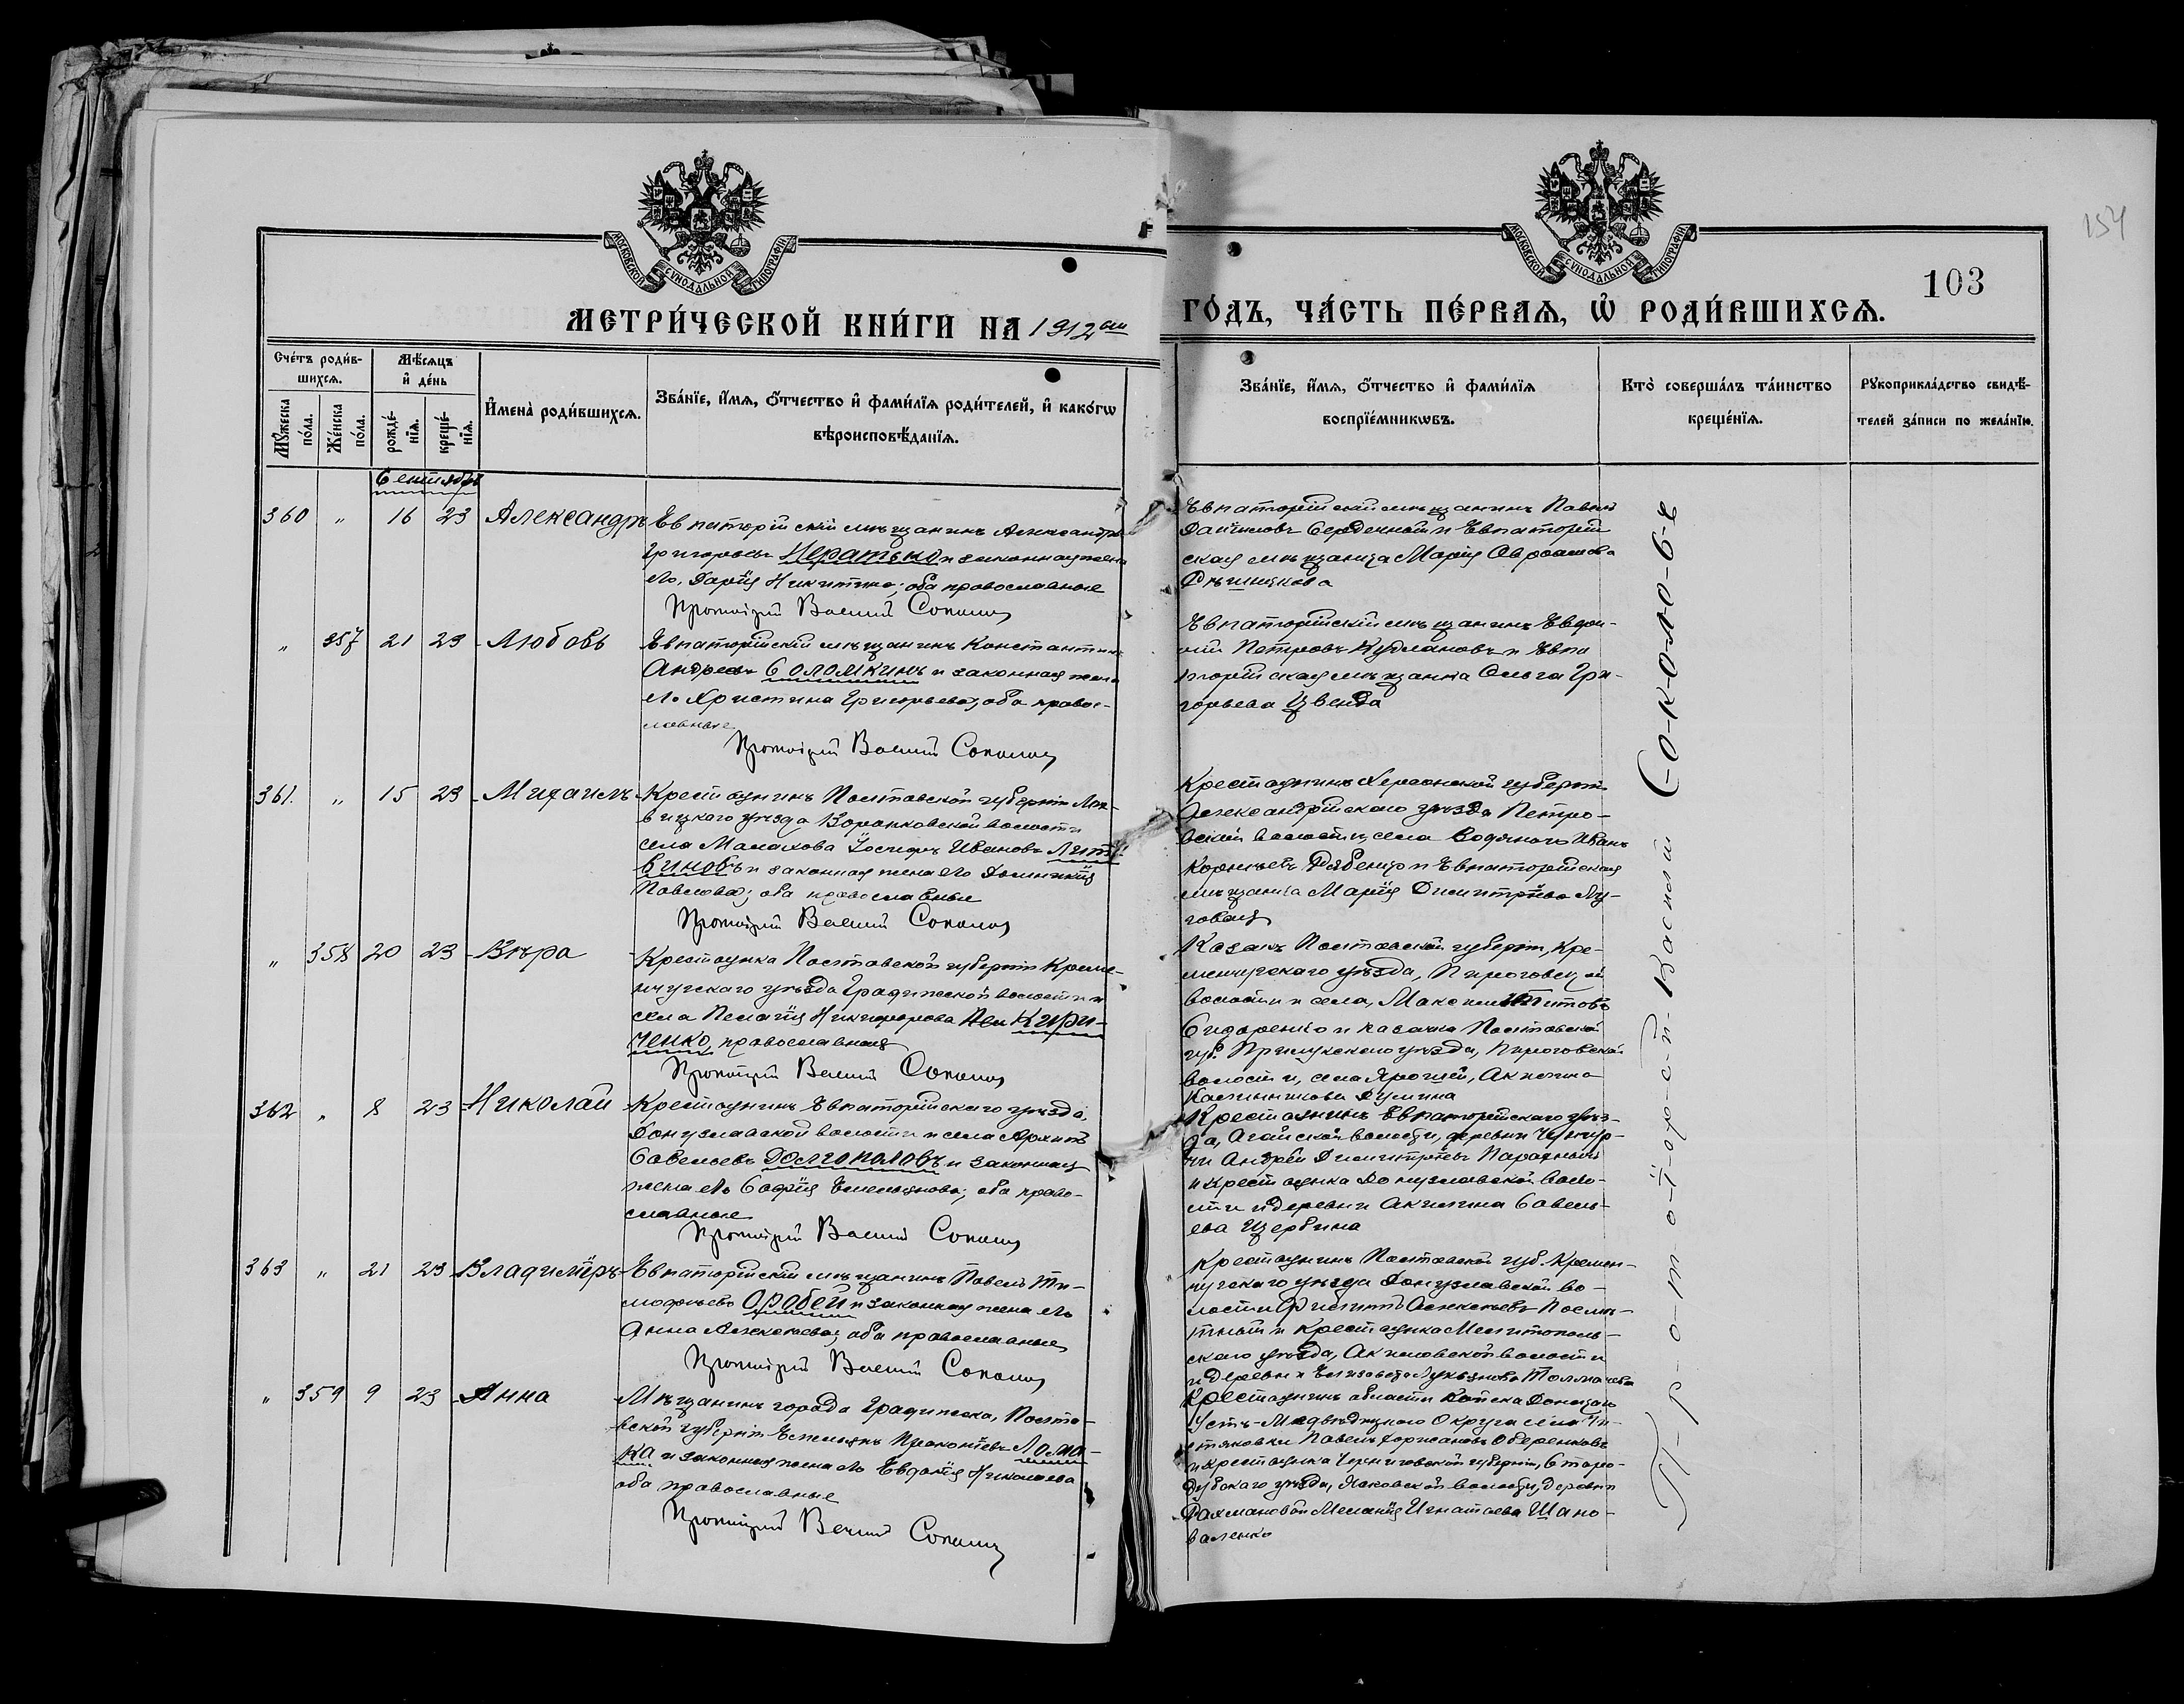 154
103
МОСКОВСКОЙ СѴНОДАЛЬНОЙ ТИПОГРАФІИ
МОСКОВСКОЙ СѴНОДАЛЬНОЙ ТИПОГРАФІИ
МЕТРИ́ЧЕСКОЙ КНИ́ГИ НА 1912 ый
ГО́ДЪ, ЧА́СТЬ ПЕ́РВАѦ, Ѡ҆ РОДИ́ВШИХСѦ.
Сче́тъ роди́в-
шихсѧ.
Мꙋ́жеска по́ла.
Же́нска по́ла.
Мѣ́сѧцъ
и҆ де́нь
рожде́-
нїѧ.
креще́-
нїѧ.
И҆мена̀ роди́вшихсѧ.
Зва́нїе, и҆́мѧ, ѻ҆́тчество и҆ фами́лїѧ роди́телей, и҆ како́гѡ
вѣроисповѣ́данїѧ.
Зва́нїе, и҆́мѧ, ѻ҆́тчество и҆ фами́лїѧ
воспрїе́мникѡвъ.
Кто̀ соверша́лъ та́инство
креще́нїѧ.
Рꙋкоприкла́дство свидѣ́-
телей за́писи по жела́нїю.
Сентябрь
360 " 16 23 Александръ
Евпаторійскій мѣщанинъ Александръ
Григорьевъ Нератько и законная жена
его, Дарія Никитина; оба православные
Протоіерей Василій Соколовъ
Евпаторійскій мѣщанинъ Павелъ
Даниловъ Сердечный и Евпаторій-
ская мѣщанка Марія Авраамова
" 357 21 23 Любовь
Евпаторійскій мѣщанинъ Константинъ
Андреевъ Соломкинъ и законная жена
его Христина Григорьева, оба правос-
лавные
Протоіерей Василій Соколовъ
Евпаторійскій мѣщанинъ Евфи-
мій Петровъ Кудмановъ и Евпа
торійская мѣщанка Ольга Гри-
горьева Цвенда
361. " 15 23 Михаилъ
Крестьянинъ Полтавской губерніи Лох-
вицкаго уѣзда Воронковской волости
села Малахова Іосифъ Ивановъ Литв-
виновъ и законная жена его Домникія
Павлова; оба православные
Протоіерей Василій Соколовъ
Крестьянинъ Херсонской губерніи
Александрійскаго уѣзда Петро-
вской волости, села Водяного Иванъ
Корнѣевъ Рябенко и Евпаторійская
мѣщанка Марія Димитріева Лу-
говая
" 358 20 23 Вѣра
Крестьянка Полтавской губерніи Креме-
нчугскаго уѣзда Градижской волости и
села Пелагія Никифорова Кири-
ченко, православная
Протоіерей Василій Соколовъ
Казакъ Полтавской губерніи, Кре-
менчугскаго уѣзда, Пироговской
волости и села, Максимъ Титовъ
Сидоренко и казачка Полтавской
губ. Прилукскаго уѣзда, Пироговской
волости, села Ярошей, Акилина
Калинникова Думина
362 " 8 23 Николай
Крестьянинъ Евпаторійскаго уѣзда,
Донузлавской волости и села Архипъ
Савельевъ Долгополовъ и законная
жена его Софія Емельянова; оба право-
славные
Протоіерей Василій Соколовъ
Крестьянинъ Евпаторійскаго уѣз-
да, Агайской волости, деревни
Андрей Димитріевъ
и крестьянка Донузлавской воло-
сти и деревни Акилина Савель-
ева Щербина
363 " 21 23 Владиміръ
Евпаторійскій мѣщанинъ Павелъ Ти-
мофѣевъ Оробей и законная жена его
Анна Алексѣева; оба православные
Протоіерей Василій Соколовъ
Крестьянинъ Полтавской губ. Кремен-
чугскаго уѣзда Донузлавской во-
лости Филиппъ Алексѣевъ
и крестьянка Мелитополь-
скаго уѣзда, Акимовской волости
и деревни Елизавета Лукьянова Толмачева
" 359 9 23 Анна
Мѣщанинъ города Градижска, Полта-
вской губерніи Емельянъ Прокопіевъ Лома-
ка и законная жена его Евдокія Николаева
оба православные
Протоіерей Василій Соколовъ
Крестьянинъ области Войска Донскаго
Усть-Медвѣдицкаго Округа села Чи-
стяковки Павелъ
и крестьянка Черниговской губерніи, Старо-
дубскаго уѣзда, волости, деревни
Рахмановой Меланія Игнатьева Шапо-
валенко
П-р-о-т-о-і-е-р-е-й Василій С-о-к-о-л-о-в-ъ